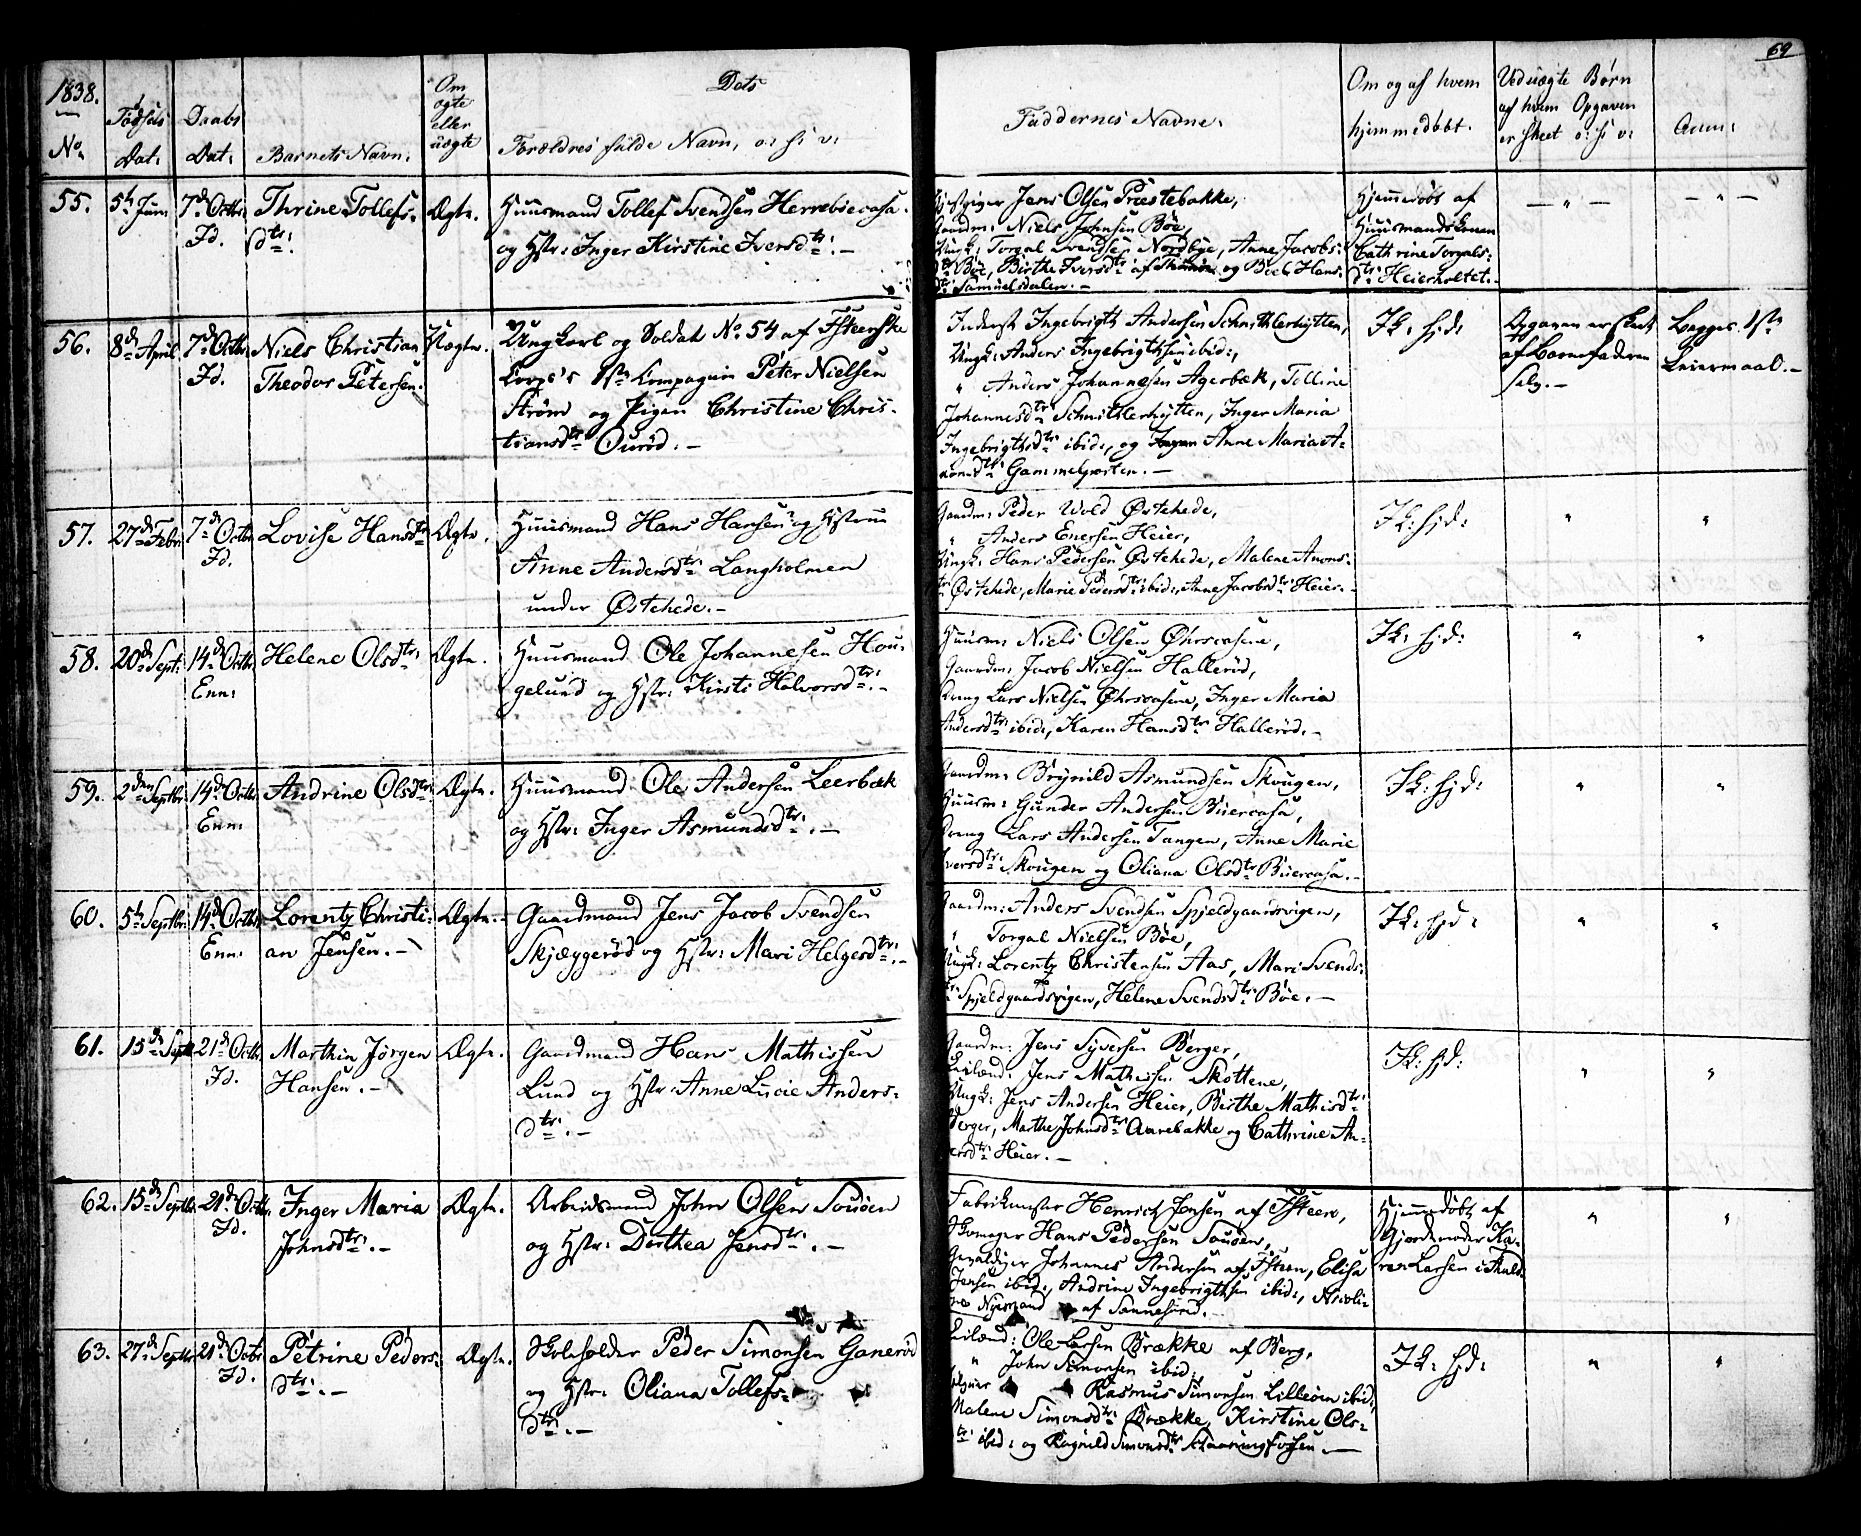 69
1838.
No.
Fødsels
Dat:
Daabs
Dat:
Barnets Navn:
Om
ægte
eller
uægte
Dets
Forældres fulde Navn, o: s: v:
Faddernes Navne:
Om og af hvem
hjemmedøbt.
Ved uægte Børn
af hvem Opgaven
er skeet o: s: v:
Anm:
55.
5t Juni
7d Octbr
Id.
Thrine Tollefs-
dtr:
Ægte.
Huusmand Tollef Svendsen Herrebøecasa.
og Hstr: Inger Kirstine Iversdtr: . —
Jens Olsen Præstebakke,
Gaardm: Niels Johnsen Bøe,
Ungk: Torgal Svendsen Nordbye, Anne Jacobs-
dtr Bøe, Birthe Iversdtr af og Boel Hans-
dtr Samuelsdalen. —
Hjemmedøbt af
Huusmandskonen
Cathrine Torgals-
dtr Heierholtet. -
— „ —
— „ —
56.
8d April
7d Octbr
Id.
Niels Christian
Theodor Petersen.
Uægte.
Ungkarl og Soldat No 54 af
Corps's 1ste Compagnie Peter Nielsen
Strøm og Pigen Christine Chris-
tiansdtr Ourød. —
Inderst Ingebrigth Andersen Schmitlerhytten,
Ungk: Anders Ingebrigthsen ibid:,
„ Anders Johannesen Agerbæk, Telline
Johannesdtr Schmitlerhytten, Inger Maria
Ingebrigthsdtr ibid:, og Anne Maria A-
Gammelgorten. —
Ik: hjd:
Opgaven er skeet
af Barnefaderen
selv. —
Begges 1ste
Leiermaal. —
57.
27d Febr:
7d Octbr
Id.
Lovise Hansdtr
Ægte.
Huusmand Hans Hansen og Hstrue
Anne Andersdtr: Langholmen
under Østehede. —
Gaardm: Peder Wold Østehede,
„ Anders Enersen Heier,
Ungk: Hans Pedersen Østehede, Malene Amons-
dtr Østehede, Marie Pedersdtr: ibid:, Anne Jacobsdtr: Heier. -
Ik: hjd:
„
„
58.
20d Sept:
14d Octbr
Enn:
Helene Olsdtr:
Ægte.
Huusmand Ole Johannesen Hou-
gelund og Hstr: Kirsti Halvorsdtr: . -
Huusm: Niels Olsen Øhrscasene,
Gaardm: Jacob Nielsen Hallerød,
Dreng Lars Nielsen Øhrscasene, Inger Maria
Andersdtr: ibid:, Karen Hansdtr Hallerød. —
Ik: hjd:
„
„
59.
2den Septbr:
14d Octbr:
Enn:
Andrine Olsdtr:
Ægte.
Huusmand Ole Andersen Leerbæk
og Hstr: Inger Asmundsdtr: . —
Gaardm: Brynild Asmundsen Skougen,
Huusm: Gunder Andersen Buercasa,
Dreng Lars Andersen Tangen, Anne Marie
Iversdtr: Skougen og Oliana Olsdtr Buercasa. -
Ik: hjd:
„
„
60.
5t Septbr:
14d Octbr
Enn:
Lorentz Christi-
an Jensen. —
Ægte.
Gaardmand Jens Jacob Svendsen
Skjæggerød og Hstr: Mari Helgesdtr: . -
Gaardm: Anders Svendsen Spjeldgaardsvigen,
„ Torgal Nielsen Bøe,
Ungk: Lorentz Christensen Aas, Mari Svends-
dtr Spjeldgaardsvigen, Helene Svendsdtr: Bøe. —
Ik: hjd:
„
„
61.
15d Septbr
21d Octbr
Id.
Marthin Jørgen
Hansen. —
Ægte.
Gaardmand Hans Mathissen
Lund og Hstr: Anne Lucie Anders-
dtr: . —
Gaardm: Jens Syversen Berger,
Leilænd: Jens Mathissen Skottene,
Ungk: Jens Andersen Heier, Birthe Mathisdtr:
Berger, Marthe Johnsdtr: Aarebakke og Cathrine An-
dersdtr: Heier. —
Ik: hjd:
„
„
62.
15d Septbr:
21d Octbr.
Id.
Inger Maria
Johnsdtr: . —
Ægte.
Arbeidsmand John Olsen Souøen
og Hstr: Dorthea Jensdtr: . —
Henrich Jensen af
Skomager Hans Pedersen Souøen,
Johannes Andersen af Elisa
Jensen ibid:, Andrine Ingebrigthsen ibid:, Nicoli-
ne af Sannesund. —
Hjemmedøbt af
Gjordemoder Ka-
ren Larsen i
„
„
63.
27d Septbr
21d Octbr
Id.
Petrine Peders-
dtr: . —
Ægte.
Skoleholder Peder Simonsen Ganerød
og Hstr: Oliana Tollefs-
dtr: . —
Leilænd: Ole Larsen Brække af Berg,
„ John Simonsen ibid,
Rasmus Simonsen Lilleøen ibid:
Malene Simonsdtr: Brække, Kirstine Ols-
dtr: ibid: og Ragnild Simonsdtr —
Ik: hjd:
„
„